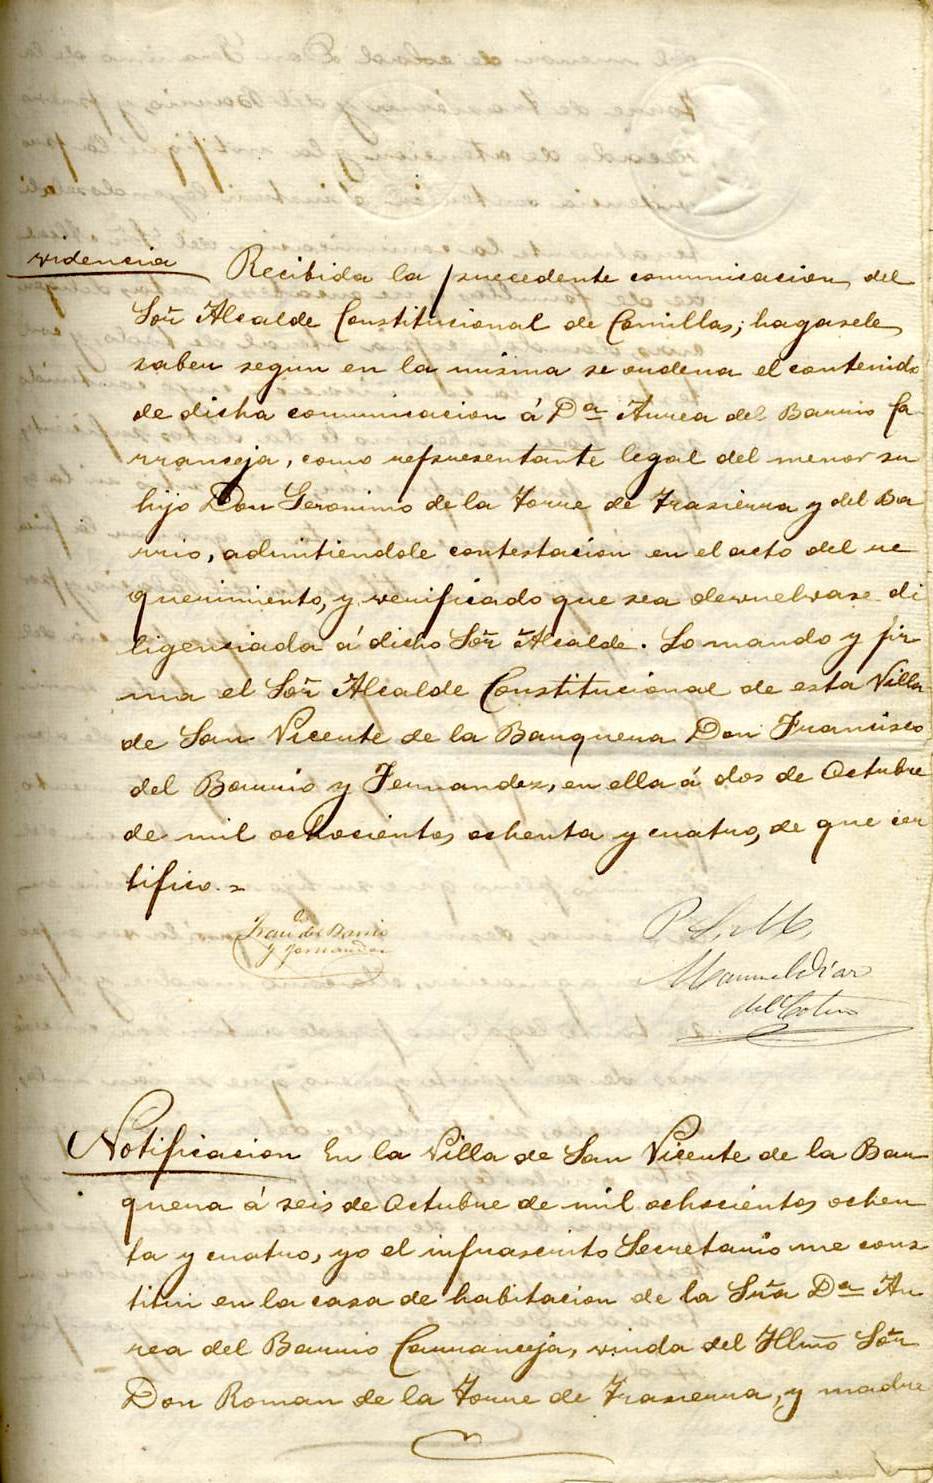 videncia Recibida la precedente comunicacion del
Sor. Alcalde Constitucional de Comillas; hagasele
saber segun en la misma se ordena el contenido
de dicha comunicacion á Da. Aurea del Barrio Ca
rranceja, como representante legal del menor su
hijo Don Geronimo de la Torre de Trasierra y del Ba
rrio, admitiendole contestacion en el acto del re
querimiento, y verificado que sea devuelvase di
ligenciada á dicho Sor. Alcalde. Lo mando y fir
ma el Sor. Alcalde Constitucional de esta Villa
de San Vicente de la Barquera Don Francisco
del Barrio y Fernandez, en ella á dos de Octubre
de mil ochocientos ochenta y cuatro, de que cer
tifico.=
Franco. del Barrio
y Fernandez
P. S. M,
Manuel Diaz
del Cotero
Notificacion En la Villa de San Vicente de la Bar
quera á seis de Octubre de mil ochocientos ochen
ta y cuatro, yo el infrascrito Secretario me cons
titui en la casa de habitacion de la Sra. Da. Au
rea del Barrio Carranceja, viuda del Illmo Sor.
Don Roman de la Torre de Trasierra, y madre